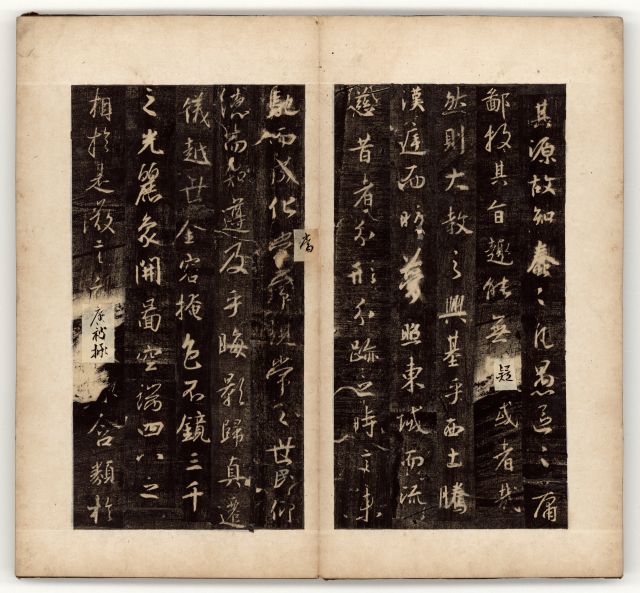 其源故知蠢〻凡愚區〻庸
鄙投其旨趣能無疑或者哉
然則大教之興基乎西土騰
漢庭而皎夢照東域而流
慈昔者分形分跡之時言未
馳而成化當常現常之世民仰
德而知遵及乎晦影歸真遷
儀越世金容掩色不鏡三千
之光麗象開圖空端四八之
相於是微言廣被拯含類於